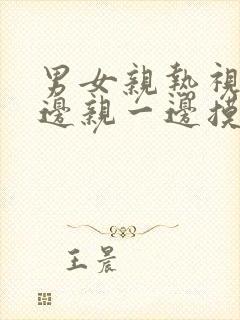 男女親熱視
邊親一邊摸
王晨